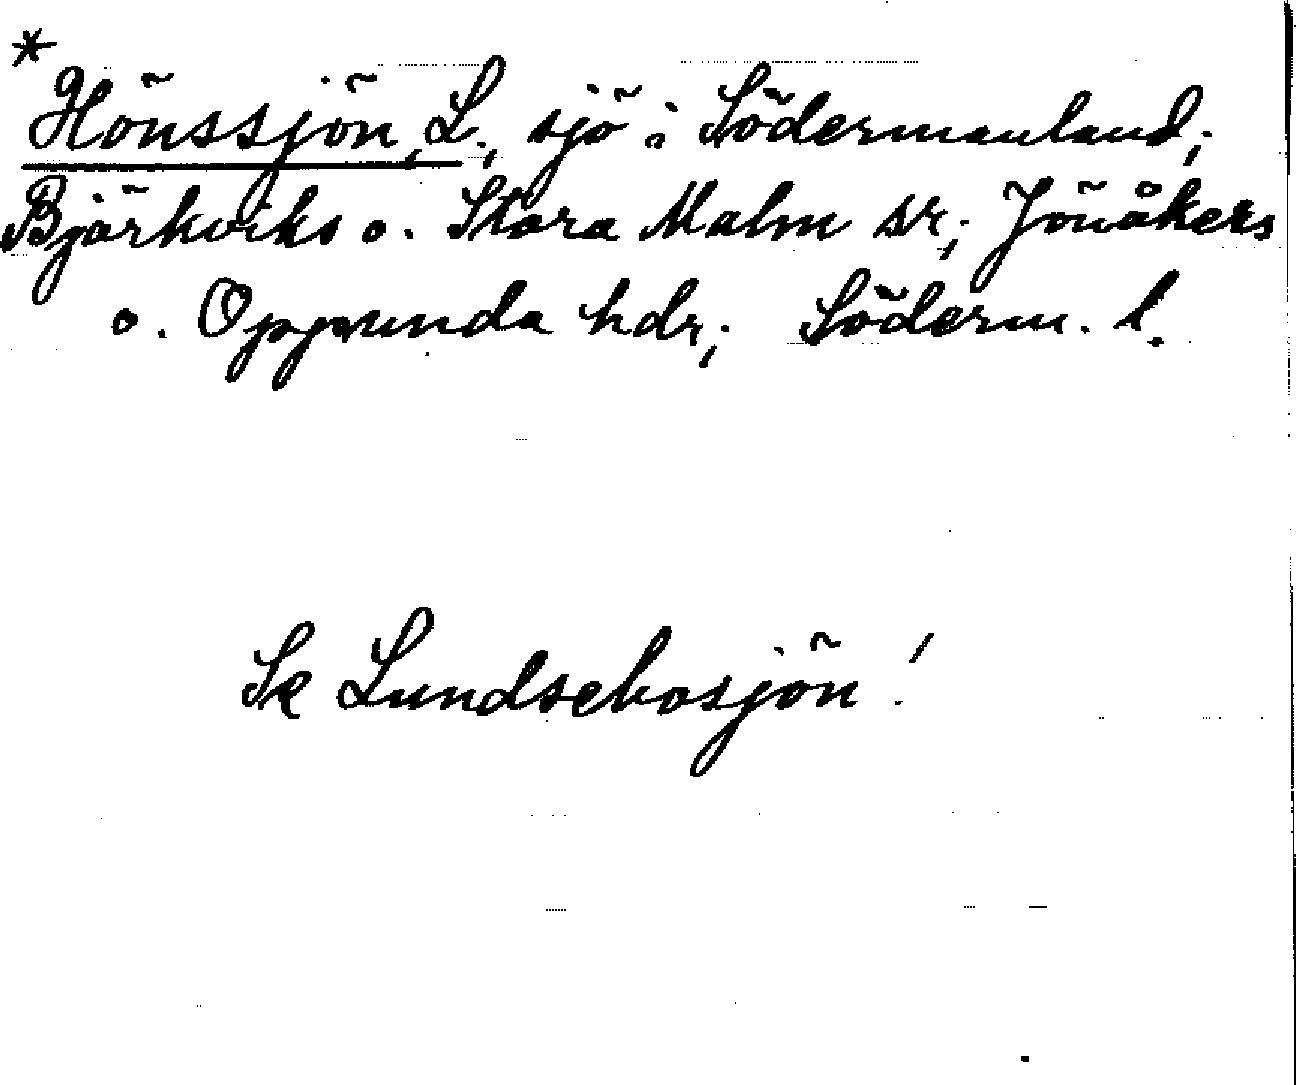 *
Hönssjön, L., sjö i Södermanland;
Björkviks o. Stora Malm sr; Jönåkers
o. Oppunda hdr; Söderm. l.
Se Lundsebosjön!